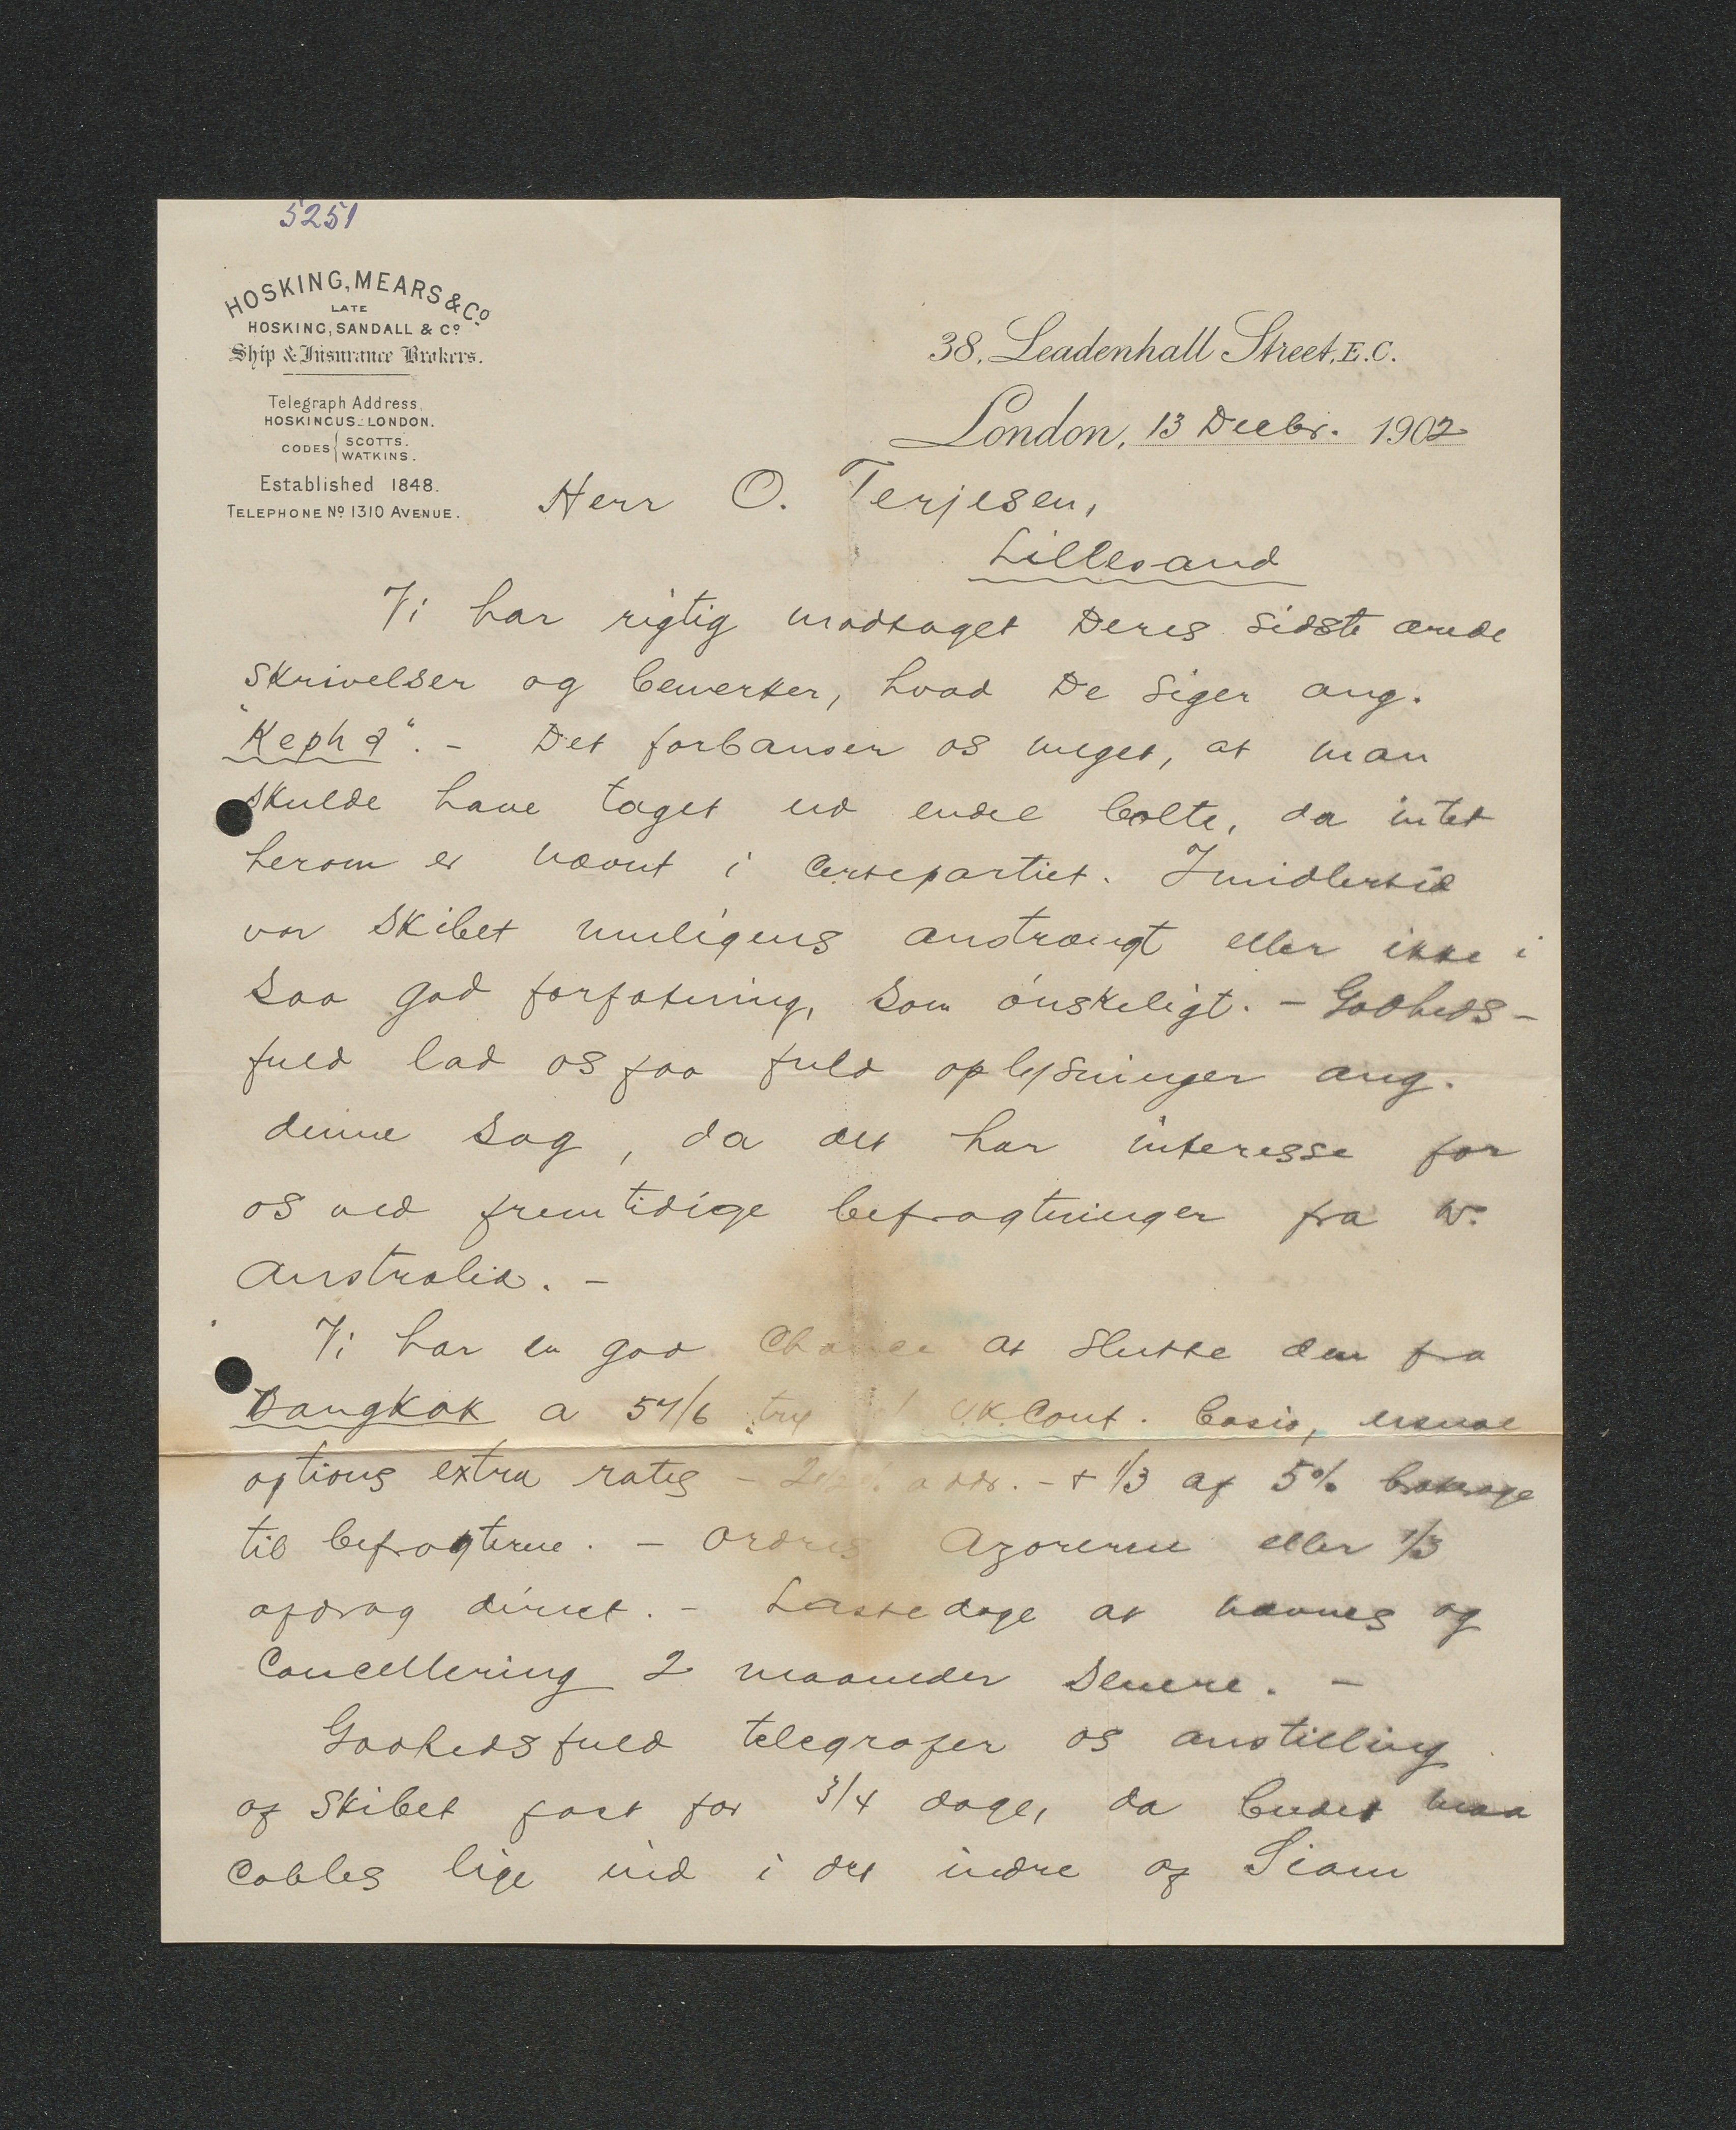 5251
HOSKING, MEARS & Co.
LATE
HOSKING, SANDALL & Co.
Ship & Insurance Brokers.
Telegraph Address,
HOSKINGUS.-LONDON.
CODES { SCOTTS.
WATKINS.
Established 1848.
TELEPHONE No 1310 AVENUE.
38, Leadenhall Street, E.C.
London, 13 Decbr. 1902
Herr O. Terjesen,
Lillesand
Vi har rigtig modtaget Deres sidste ærede
skrivelser og bemerker, hvad De siger ang.
"Kepha". - Det forbauser os meget, at man
skulde have taget ud endel bolte, da intet
herom er nævnt i certepartiet. Imidlertid
var skibet muligens anstrængt eller ikke i
saa god forfatning, som ønskeligt. - Godheds-
fuld lad os faa fuld oplysninger ang.
denne sag, da det har interesse for
os ved fremtidige befragtninger fra W.
Australia. -
Vi har en god Chance at slutte den fra
Bangkok a 57/6 U.K. Cont. basis, usual
options extra rates - addr. - + 1/3 af 5% brokerage
til befragterne. - Ordres Azorerne eller 1/3
afdrag direct. - Lastedage at nævnes og
Cancellering 2 maaneder senere. -
Godhedsfuld telegrafer os anstilling
af skibet fast for 3/4 dage, da budet maa
cables lige ind i det indre af Siam